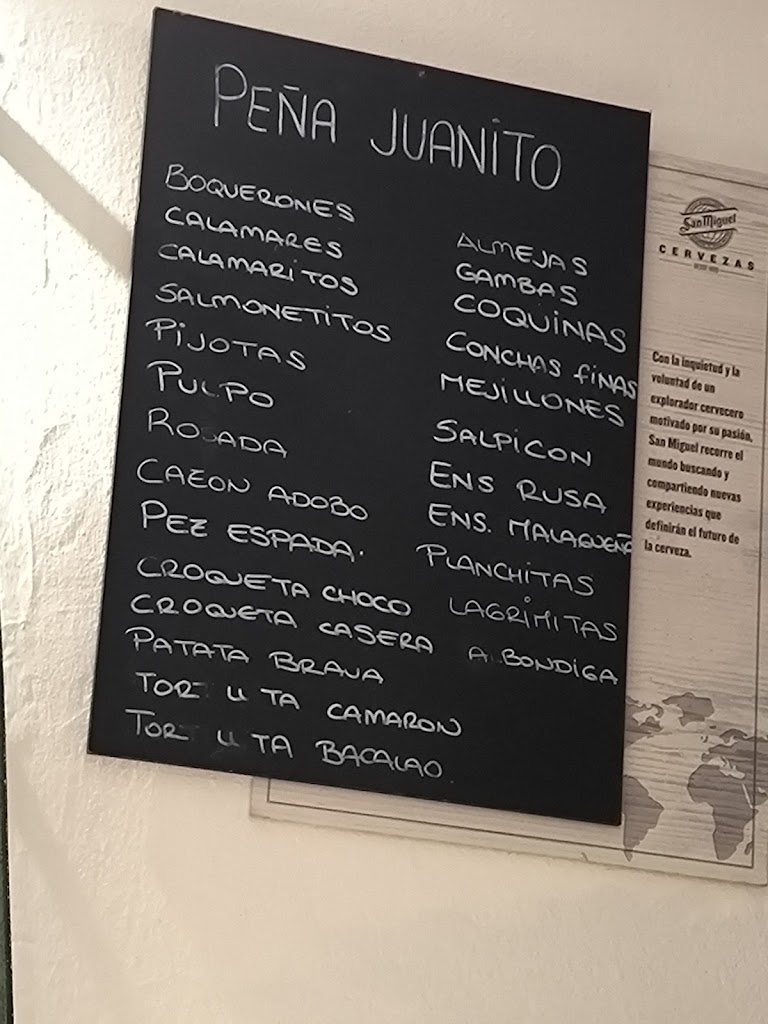 PEÑA JUANITO
BOQUERONES
CALAMARES
CALAMARITOS
SALMONETITOS
PIJOTAS
PULPO
ROSADA
CAZON ADOBO
PEZ ESPADA.
CROQUETA CHOCO
CROQUETA CASERA
PATATA BRAVA
TORTILLITA CAMARON
TORTILLITA BACALAO
ALMEJAS
GAMBAS
COQUINAS
CONCHAS FINAS
MEJILLONES
SALPICON
ENS RUSA
ENS. MALAGUEÑA
PLANCHITAS
LAGRIMITAS
ALBONDIGA
San Miguel
CERVEZAS
Con la inquietud y la
voluntad de un
explorador cervecero
motivado por su pasión,
San Miguel recorre el
mundo buscando y
compartiendo nuevas
experiencias que
definirán el futuro de
la cerveza.